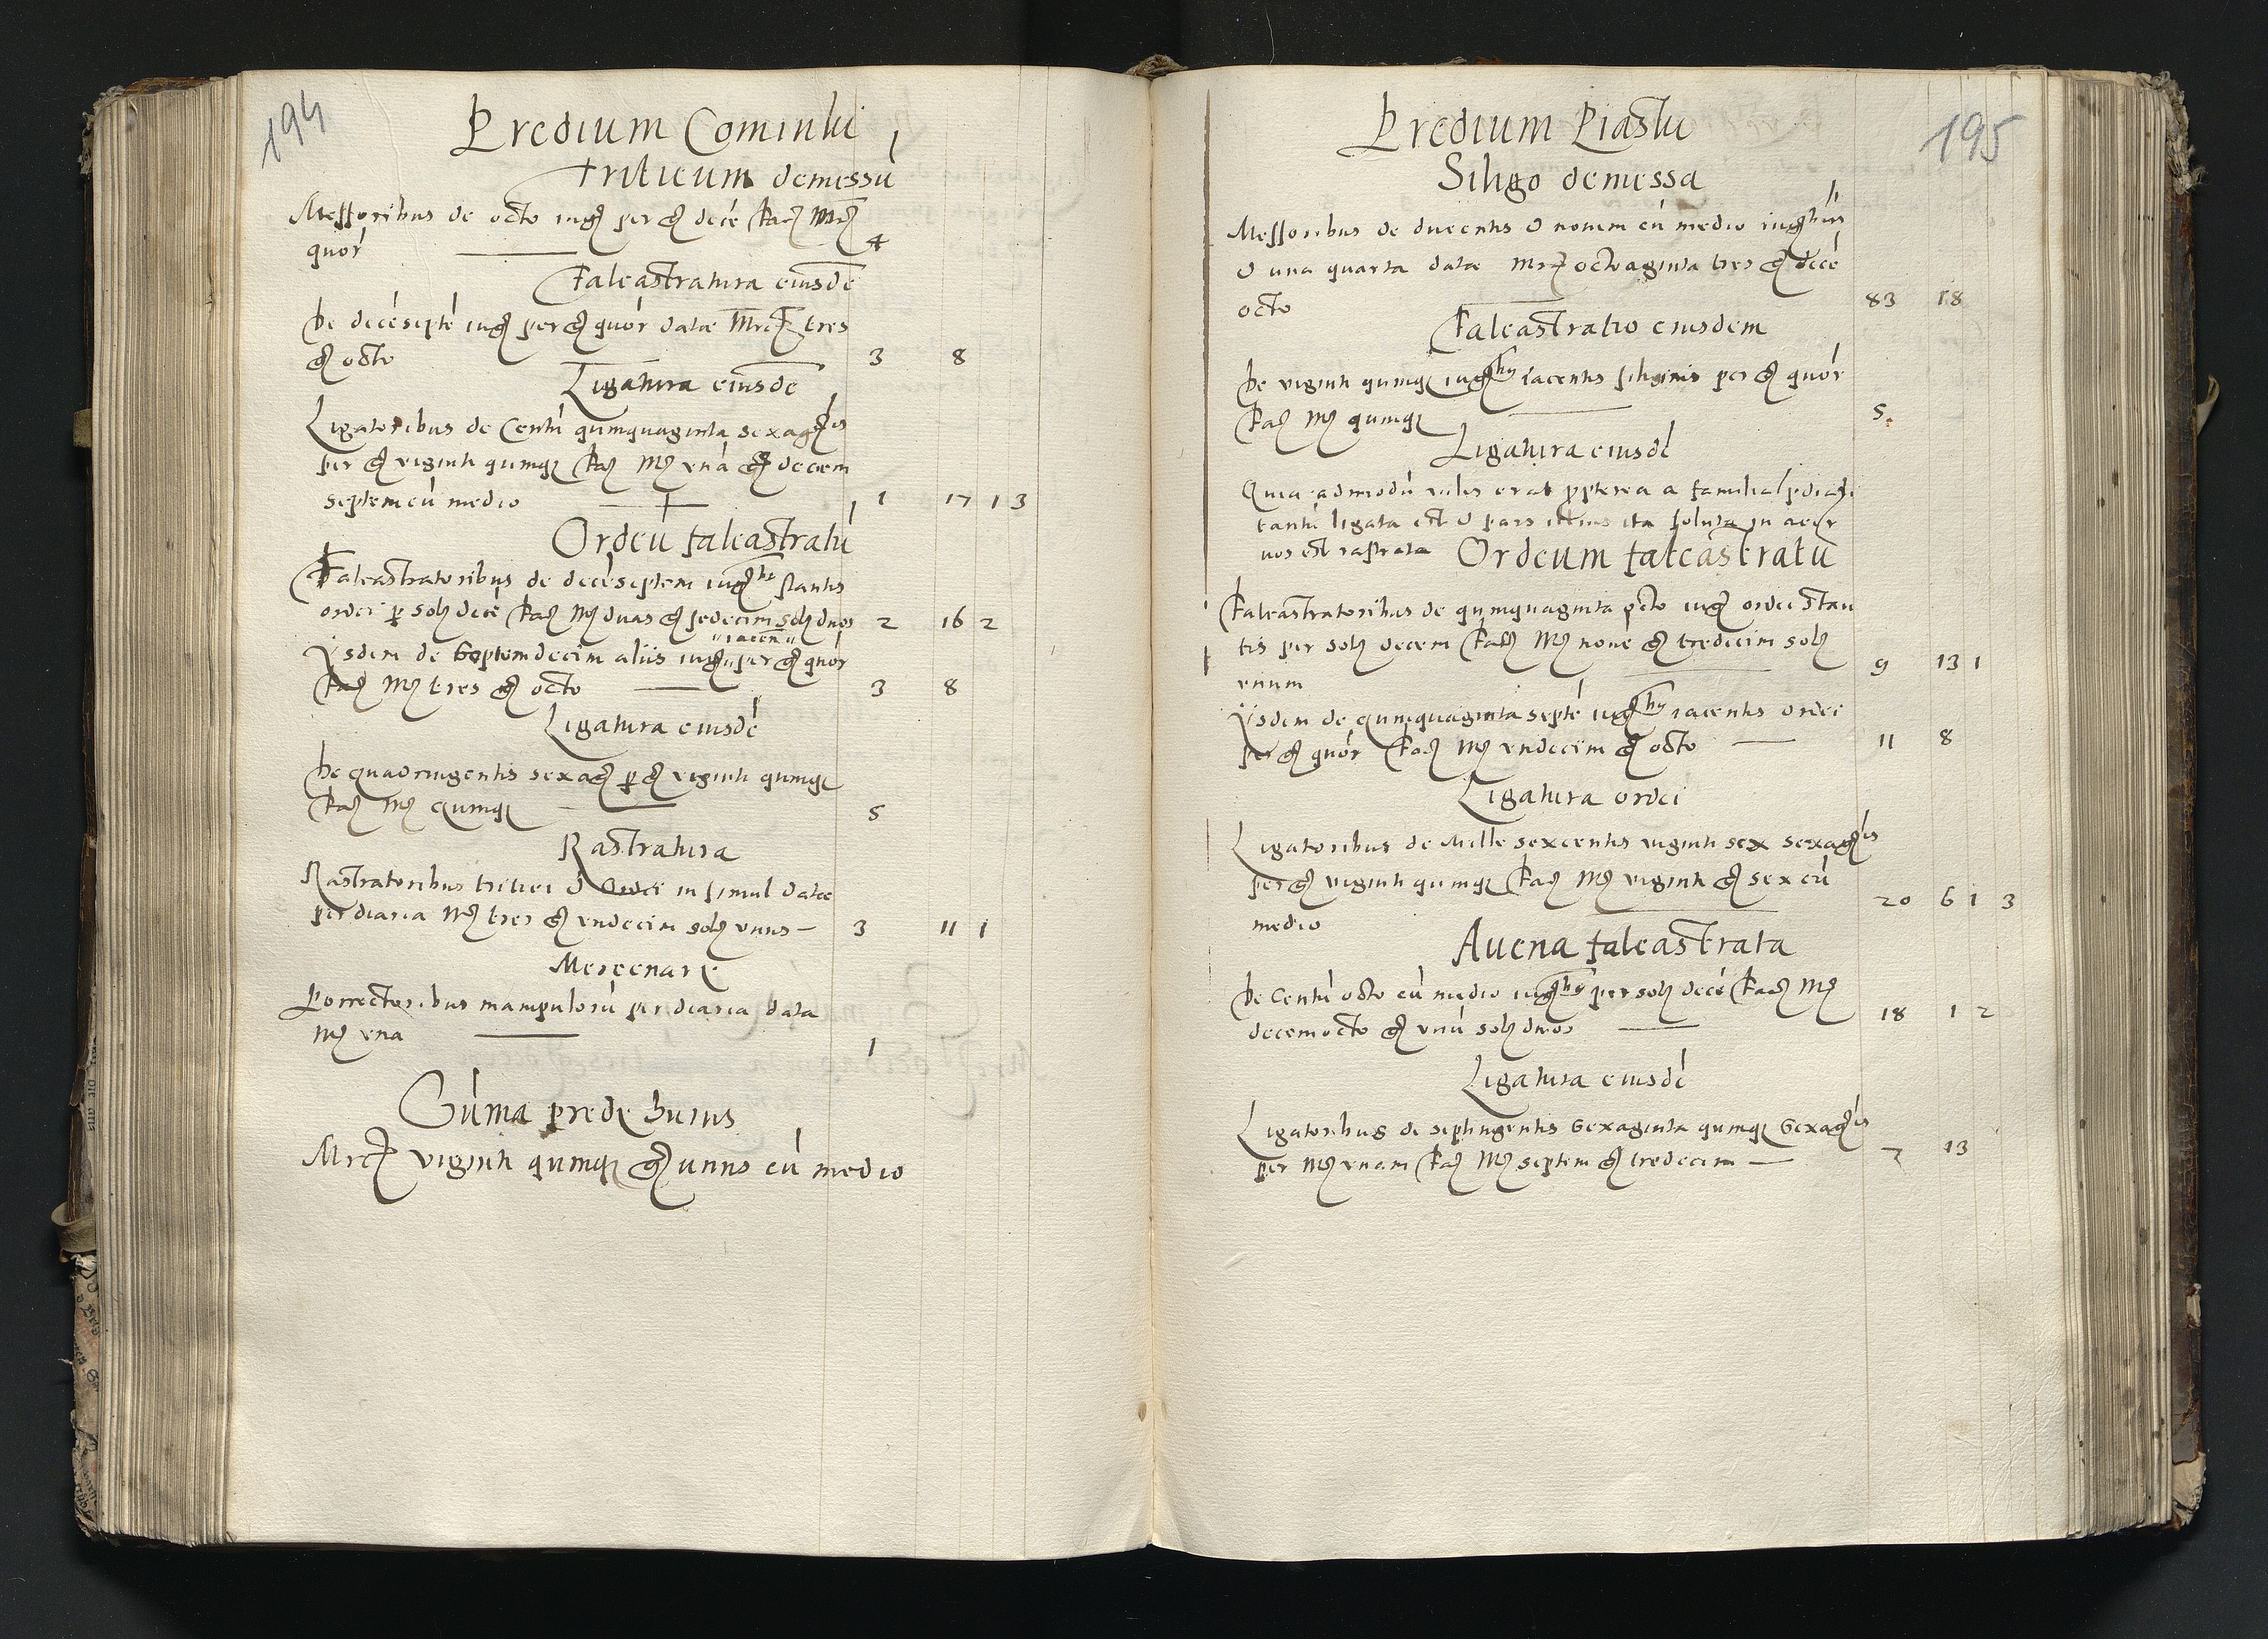 194
Predium Cominki
triticum demessú
Messoribus de octo iug per g decē fac Mrc
quor 4
Faleastratura eiusdē
De decēseptē iug per g quor datæ Mrc tres
g octo 3 8
Ligatura eiusdē
Ligatoribus de Centú quinquaginta sexagis
per g viginti quinq fac M vná g decem
septem cú medio 1 17 1 3
Ordeú faleastratú
Faleastratoribus de decēseptem iug stantis
ordei p sol decē fac M duas g sedecim sol duos 2 16 2
"iacen"
Ysdem de Septemdecim aliis iug per g quor
fac M tres g octo 3 8
Ligatura eiusdē
De quadringentis sexag p g viginti quinq
fac M quinq 5
Rastratura
Rastratoribus tritici & Ordei in simul datæ
per diaria M tres g vndecim sol vnus 3 11 1
Mercenarie
Porrectoribus manipulorú per diaria data
M vna 1
Súma predę huius
Mrc viginti quinq g unus cú medio
195
Predium Piastu
Siligo demessa
Messoribus de ducentis & novem cú medio iug
& una quarta datæ Mrc octoaginta tres g decē
octo 83 18
Faleastratio eiusdem
De viginti quinq iug iacentis siliginis per g quor
fac M quinq 5
Ligatura eiusdē
Quia admodú vilis erat propterea a familia
tantú ligata est & pars illius ita soluta in acer
vos est rastrata Ordeum faleastratú
Faleastratoribus de quinquaginta octo iug ordei stan
tis per sol decem fac M nove g tredecim sol
vnum 9 13 1
Ysdem de quinquaginta septē iug iacentis ordei
per g quor fac M vndecim g octo 11 8
Ligatura ordei
Ligatoribus de Mille sexcentis viginti sex sexagis
per g viginti quinq fac M viginti g sex cú
medio 20 6 1 3
Auena faleastrata
De Centú octo cú medio iug per sol decē fac M
decemocto g vnú sol duos 18 1 2
Ligatura eiusdē
Ligatoribus de septingentis Sexaginta quinq Sexagis
per M vnam fac M septem g tredecim 7 13